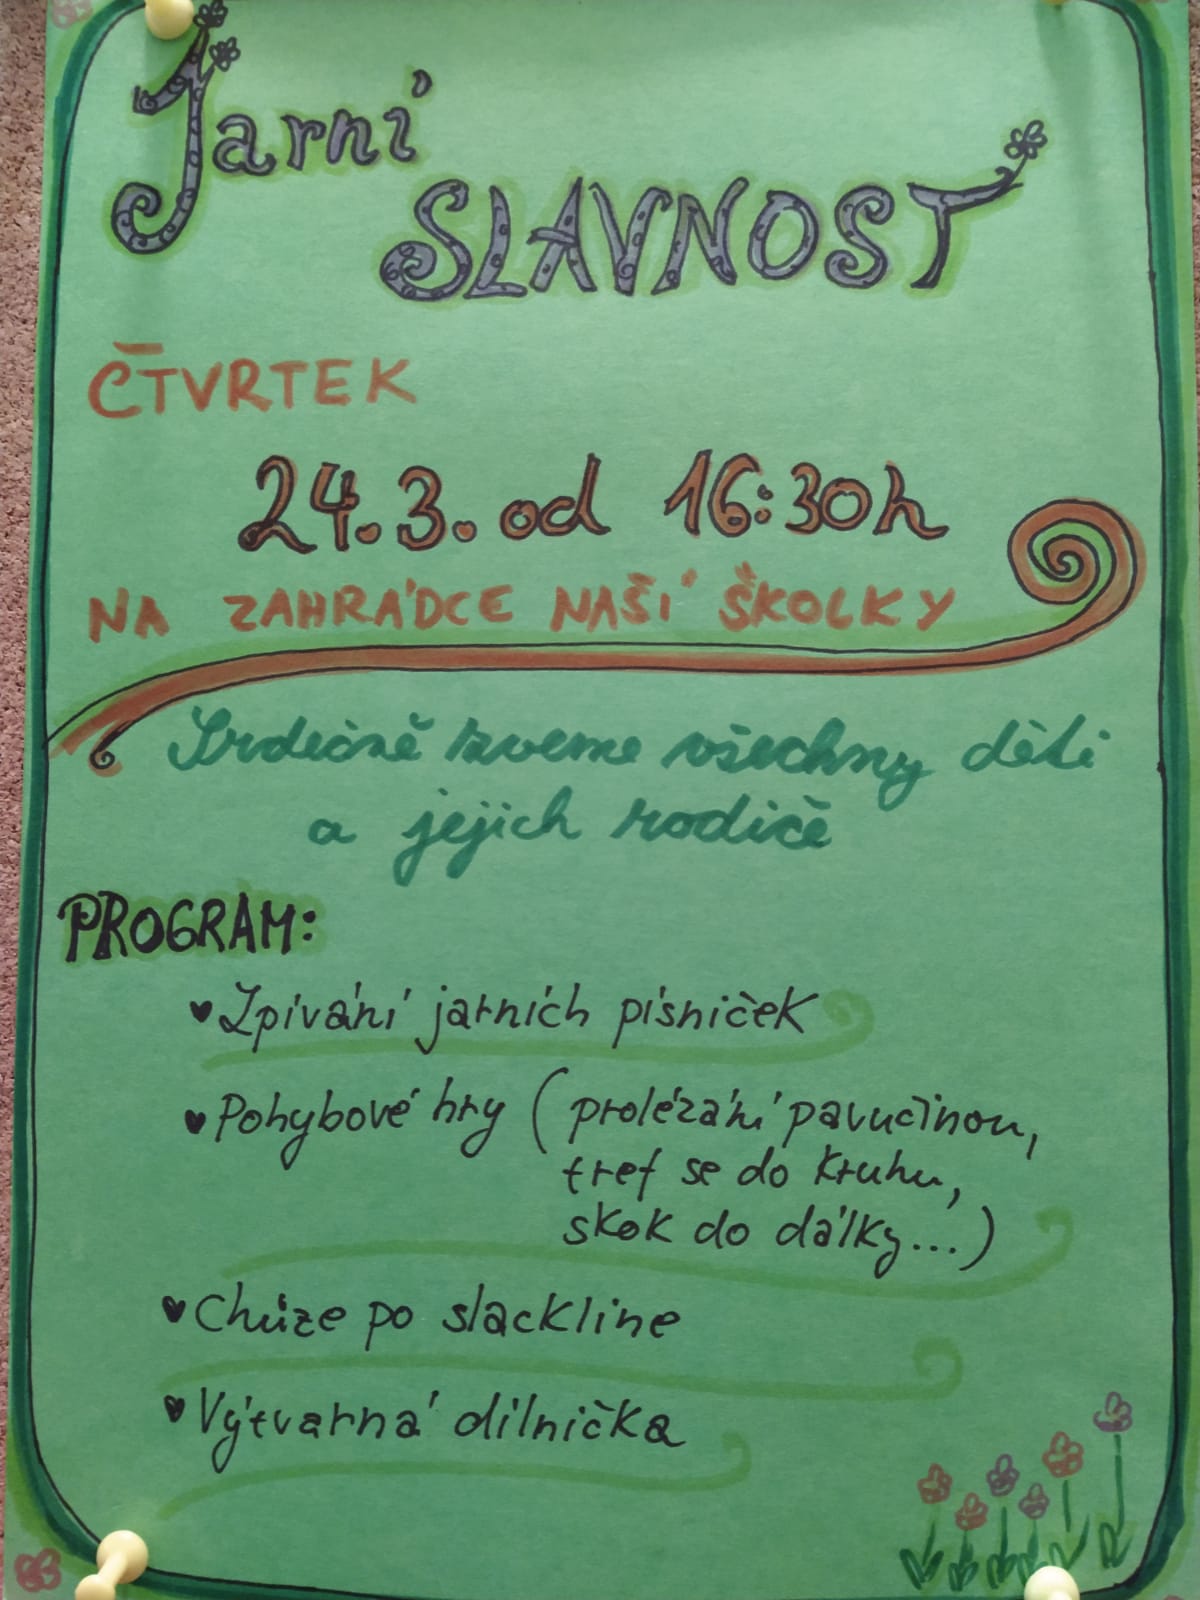 Jarní
SLAVNOST
ČTVRTEK
24.3. od 16:30h
NA ZAHRÁDCE NAŠÍ ŠKOLKY
Srdečně zveme všechny děti
a jejich rodiče
PROGRAM:
♥ Zpívání jarních písniček
♥ Pohybové hry (prolézání pavučinou,
tref se do kruhu,
skok do dálky...)
♥ Chůze po slackline
♥ Výtvarná dílnička